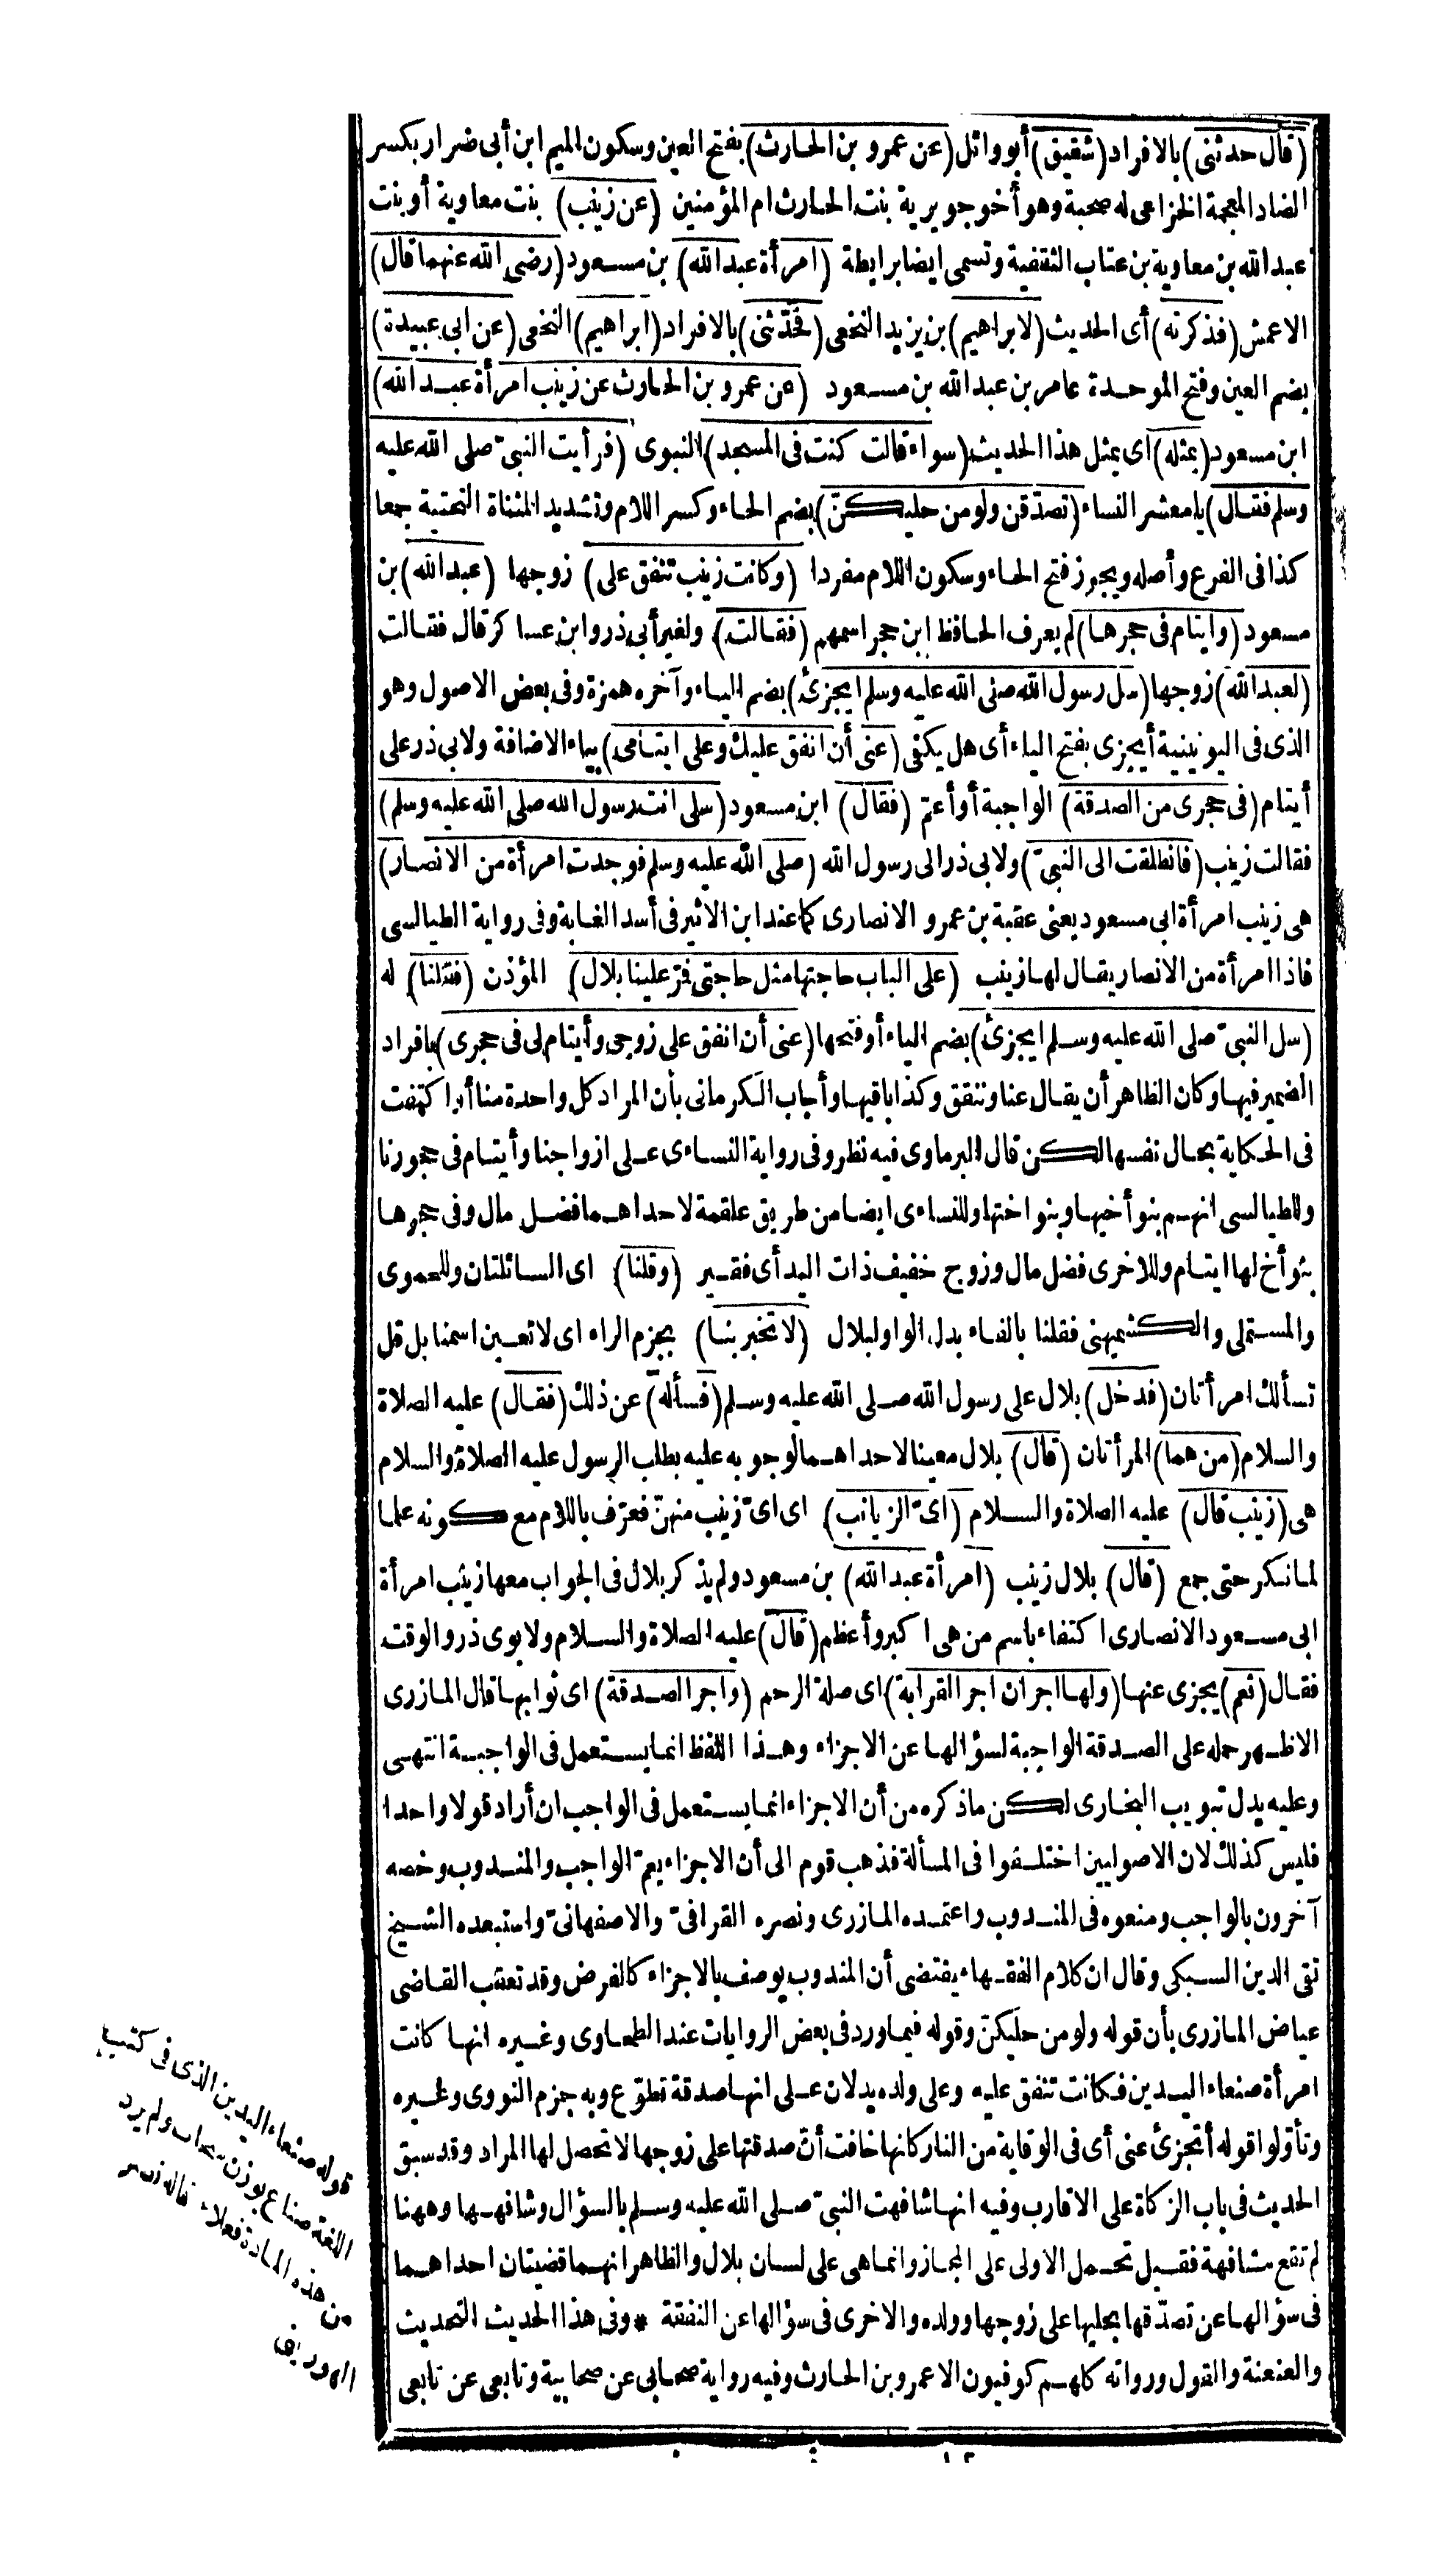 (قال حدثنى) بالافراد (شقيق) أبو وائل (عن عمرو بن الحارث) بفتح العين وسكون الميم ابن أبى ضرار بكسر
الضاد المعجمة الخزاعى له صحبة وهو أخو جويرية بنت الحارث ام المؤمنين (عن زينب) بنت معاوية أو بنت
عبد الله بن معاوية بن عتاب الثقفية وتسمى ايضا برايطة (امرأة عبد الله) بن مسعود (رضى الله عنهما قال)
الاعمش (فذكرته) أى الحديث (لابراهيم) بن يزيد النخعى (فحدّثنى) بالافراد (ابراهيم) النخعى (عن ابى عبيدة)
بضم العين وفتح الموحدة عامر بن عبد الله بن مسعود (عن عمرو بن الحارث عن زينب امرأة عبد الله)
ابن مسعود (بمثله) اى بمثل هذا الحديث (سواء قالت كنت فى المسجد) النبوى (فرأيت النبىّ صلى الله عليه
وسلم فقال) يا معشر النساء (تصدّقن ولو من حليكنّ) بضم الحاء وكسر اللام وتشديد المثناة التحتية جمعا
كذا فى الفرع وأصله ويجوز فتح الحاء وسكون اللام مفردا (وكانت زينب تنفق على) زوجها (عبد الله) بن
مسعود (وايتام فى حجرها) لم يعرف الحافظ ابن حجر اسمهم (فقالت) ولغير أبى ذر وابن عساكر قال فقالت
(لعبد الله) زوجها (سل رسول الله صلى الله عليه وسلم ايجزئ) بضم الياء وآخره همزة وفى بعض الاصول وهو
الذى فى اليونينية أيجزى بفتح الياء أى هل يكفى (عنى أن انفق عليك وعلى ايتامى) بياء الاضافة ولابى ذر على
أيتام (فى حجرى من الصدقة) الواجبة أو أعمّ (فقال) ابن مسعود (سلى انت رسول الله صلى الله عليه وسلم)
فقالت زينب (فانطلقت الى النبىّ) ولابى ذر الى رسول الله (صلى الله عليه وسلم فوجدت امرأة من الانصار)
هى زينب امرأة ابى مسعود يعنى عقبة بن عمرو الانصارى كما عند ابن الاثير فى أسد الغابة وفى رواية الطيالسى
فاذا امرأة من الانصار يقال لها زينب (على الباب حاجتها مثل حاجتى فمرّ علينا بلال) المؤذن (فقلنا) له
(سل النبىّ صلى الله عليه وسلم ايجزئ) بضم الياء أو فتحها (عنى أن انفق على زوجى وأيتام لى فى حجرى) بافراد
الضمير فيها وكان الظاهر أن يقال عنا وننفق وكذا باقيها وأجاب الكرمانى بأن المراد كل واحدة منا أو اكتفت
فى الحكاية بحال نفسها لكن قال البرماوى فيه نظر وفى رواية النساءى على ازواجنا وأيتام فى حجورنا
وللطيالسى انهم بنو أخيها وبنو اختها وللنساءى ايضا من طريق علقمة لاحداهما فضل مال وفى حجرها
بنو أخ لها ايتام وللاخرى فضل مال وزوج خفيف ذات اليد أى فقير (وقلنا) اى السائلتان وللحموى
والمستملى والكشميهنى فقلنا بالفاء بدل الواو لبلال (لا تخبر بنا) بجزم الراء اى لا تعين اسمنا بل قل
تسألك امرأتان (فدخل) بلال على رسول الله صلى الله عليه وسلم (فسأله) عن ذلك (فقال) عليه الصلاة
والسلام (من هما) المرأتان (قال) بلال معينا لاحداهما لوجوبه عليه بطلب الرسول عليه الصلاة والسلام
هى (زينب قال) عليه الصلاة والسلام (اىّ الزيانب) اى اىّ زينب منهنّ فعرّف باللام مع كونه علما
لما نكر حتى جمع (قال) بلال زينب (امرأة عبد الله) بن مسعود ولم يذكر بلال فى الجواب معها زينب امرأة
ابى مسعود الانصارى اكتفاء باسم من هى اكبر وأعظم (قال) عليه الصلاة والسلام ولابوى ذر والوقت
فقال (نعم) يجزى عنها (ولها اجران اجر القرابة) اى صلة الرحم (واجر الصدقة) اى ثوابها قال المازرى
الاظهر حمله على الصدقة الواجبة لسؤالها عن الاجزاء وهذا اللفظ انما يستعمل فى الواجبة انتهى
وعليه يدل تبويب البخارى لكن ما ذكره من أن الاجزاء انما يستعمل فى الواجب ان أراد قولا واحدا
فليس كذلك لان الاصوليين اختلفوا فى المسألة فذهب قوم الى أن الاجزاء يعمّ الواجب والمندوب وخصه
آخرون بالواجب ومنعوه فى المندوب واعتمده المازرى ونصره القرافىّ والاصفهانىّ واستبعده الشيخ
تقى الدين السبكى وقال ان كلام الفقهاء يقتضى أن المندوب يوصف بالاجزاء كالفرض وقد تعقب القاضى
عياض المازرى بأن قوله ولو من حليكنّ وقوله فيما ورد فى بعض الروايات عند الطحاوى وغيره انها كانت
امرأة صنعاء اليدين فكانت تنفق عليه وعلى ولده يدلان على انها صدقة تطوّع وبه جزم النووى وغيره
وتأولوا قوله أتجزئ عنى أى فى الوقاية من النار كانها خافت أنّ صدقتها على زوجها لا تحصل لها المراد وقد سبق
الحديث فى باب الزكاة على الاقارب وفيه انها شافهت النبىّ صلى الله عليه وسلم بالسؤال وشافهها وههنا
لم تقع مشافهة فقيل تحمل الاولى على المجاز وانما هى على لسان بلال والظاهر انهما قضيتان احداهما
فى سؤالها عن تصدّقها بحليها على زوجها وولده والاخرى فى سؤالها عن النفقة * وفى هذا الحديث التحديث
والعنعنة والقول ورواته كلهم كوفيون الا عمرو بن الحارث وفيه رواية صحابى عن صحابية وتابعى عن تابعى
قوله صنعاء اليدين الذى فى كتب
اللغة صناع بوزن سحاب ولم يرد
من هذه المادة فعلاء قاله نصر
الهورينى